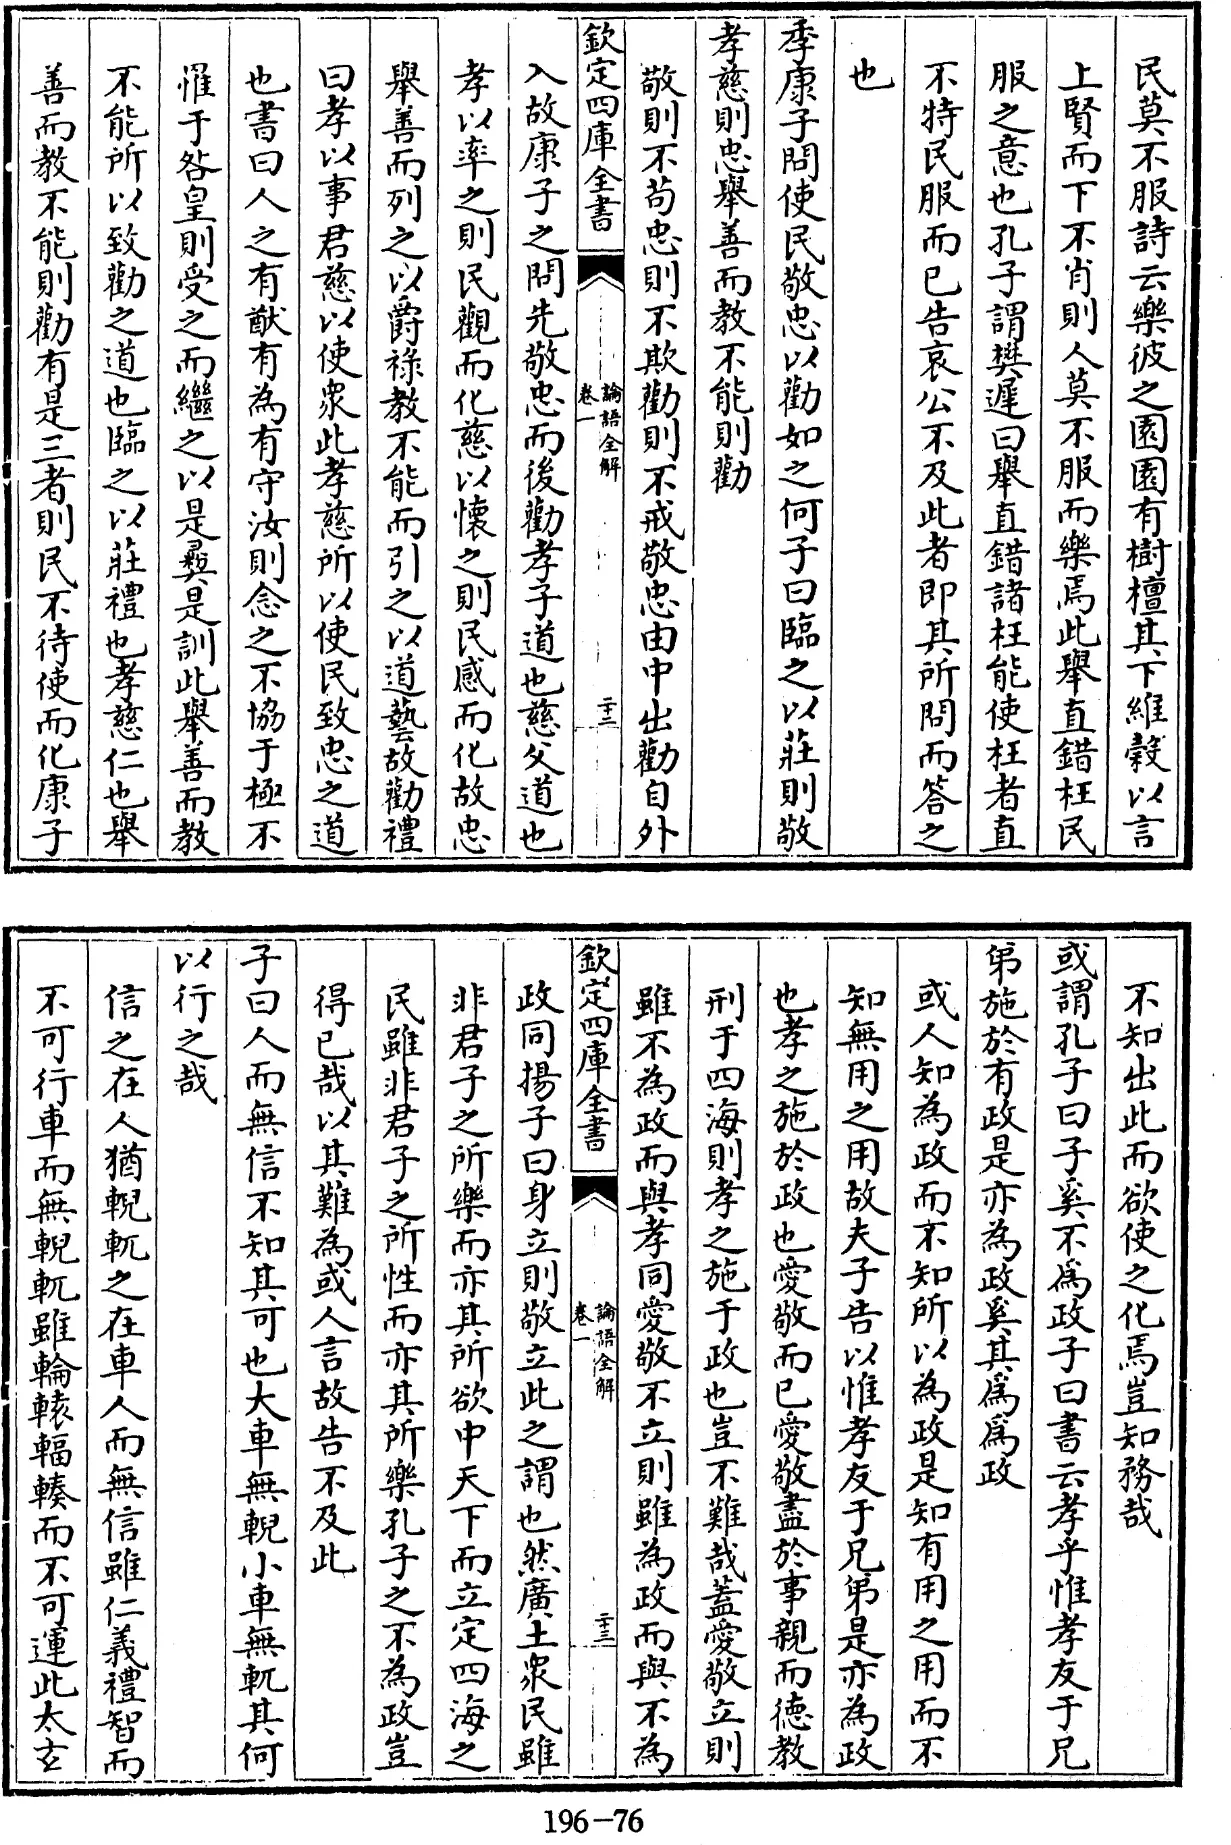 民莫不服詩云樂彼之園園有樹檀其下維榖以言
上賢而下不肖則人莫不服而樂焉此舉直錯枉民
服之意也孔子謂樊遲曰舉直錯諸枉能使枉者直
不特民服而已告哀公不及此者即其所問而答之
也
季康子問使民敬忠以勸如之何子曰臨之以莊則敬
孝慈則忠舉善而教不能則勸
敬則不苟忠則不欺勸則不戒敬忠由中出勸自外
欽定四庫全書
論語全解
卷一
二十二
入故康子之問先敬忠而後勸孝子道也慈父道也
孝以率之則民觀而化慈以懷之則民感而化故忠
舉善而列之以爵祿教不能而引之以道藝故勸禮
曰孝以事君慈以使衆此孝慈所以使民致忠之道
也書曰人之有猷有為有守汝則念之不協于極不
罹于咎皇則受之而繼之以是彞是訓此舉善而教
不能所以致勸之道也臨之以莊禮也孝慈仁也舉
善而教不能則勸有是三者則民不待使而化康子
不知出此而欲使之化焉豈知務哉
或謂孔子曰子奚不爲政子曰書云孝乎惟孝友于兄
弟施於有政是亦為政奚其爲爲政
或人知為政而不知所以為政是知有用之用而不
知無用之用故夫子告以惟孝友于兄弟是亦為政
也孝之施於政也愛敬而已愛敬盡於事親而德教
刑于四海則孝之施于政也豈不難哉蓋愛敬立則
雖不為政而與孝同愛敬不立則雖為政而與不為
欽定四庫全書
論語全解
卷一
二十三
政同揚子曰身立則敬立此之謂也然廣土衆民雖
非君子之所樂而亦其所欲中天下而立定四海之
民雖非君子之所性而亦其所樂孔子之不為政豈
得已哉以其難為或人言故告不及此
子曰人而無信不知其可也大車無輗小車無軏其何
以行之哉
信之在人猶輗軏之在車人而無信雖仁義禮智而
不可行車而無輗軏雖輪轅輻輳而不可運此太玄
196-76